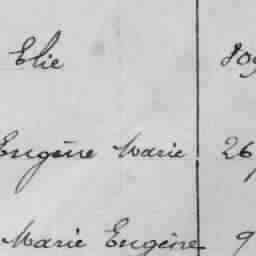 Elie
Eugène Marie 26
Marie Eugène 9